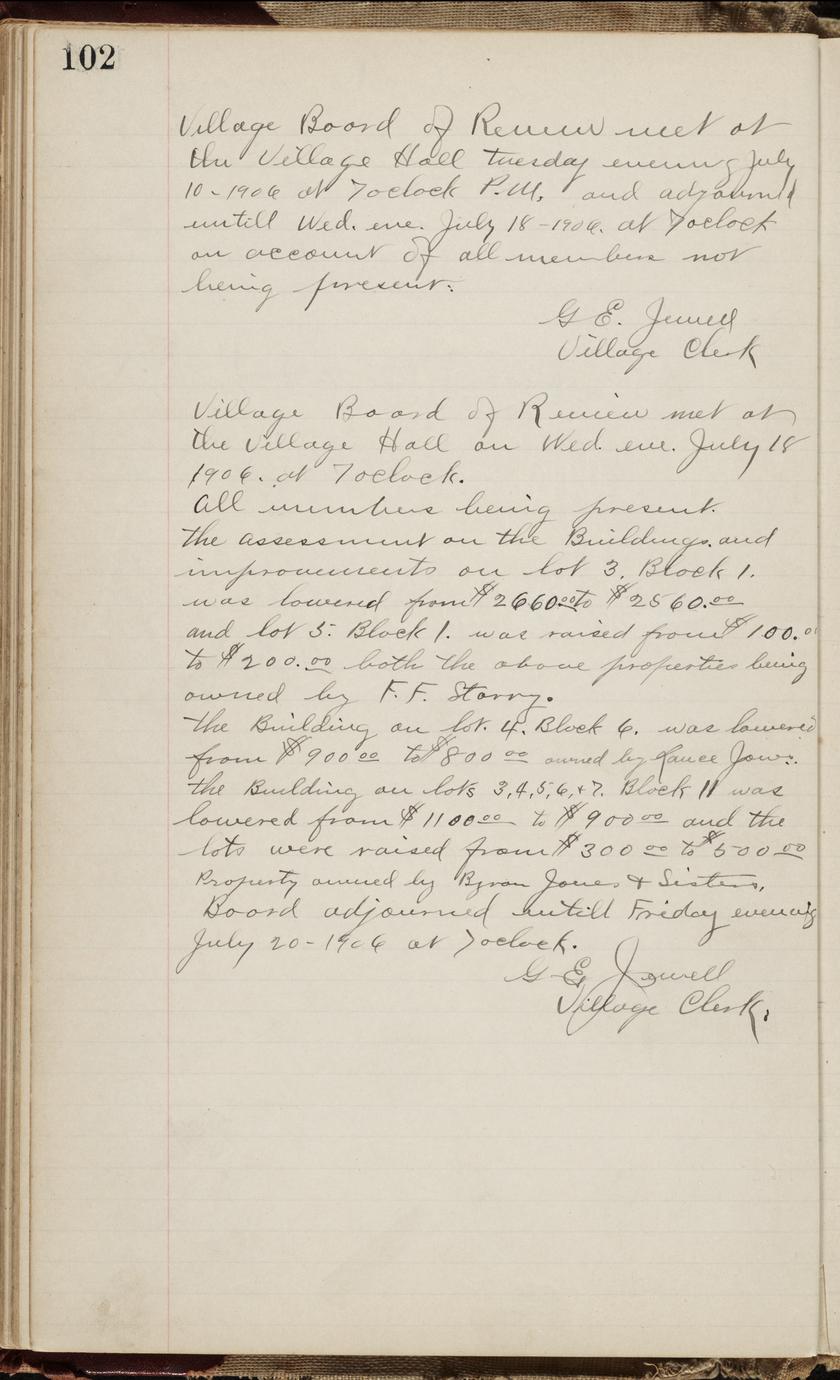 102
Village Board of Review met at
the Village Hall tuesday evening July
10-1906 at 7oclock P.M. and adjourned
untill Wed. eve. July 18-1906. at 7oclock
on account of all members not
being present.
G E. Jewell
Village Clerk
Village Board of Review met at
the Village Hall on Wed. eve. July 18
1906. at 7oclock.
All members being present.
the assessment on the Buildings and
improvements on lot 3. Block 1.
was lowered from $2660.00 to $2560.00
and lot 5. Block 1. was raised from $100.00
to $200.00 both the above properties being
owned by F.F. Starry.
the Building on lot. 4. Block 6. was lowered
from $900 00 to $800 00 owned by
the Building on lots 3,4,5,6,+7. Block 11 was
lowered from $1100 00 to $900 00 and the
lots were raised from $300 00 to $500 00
Property owned by Byron Jones & Sisters.
Board adjourned untill Friday evening
July 20-1906 at 7oclock.
G E, Jewell
Village Clerk.